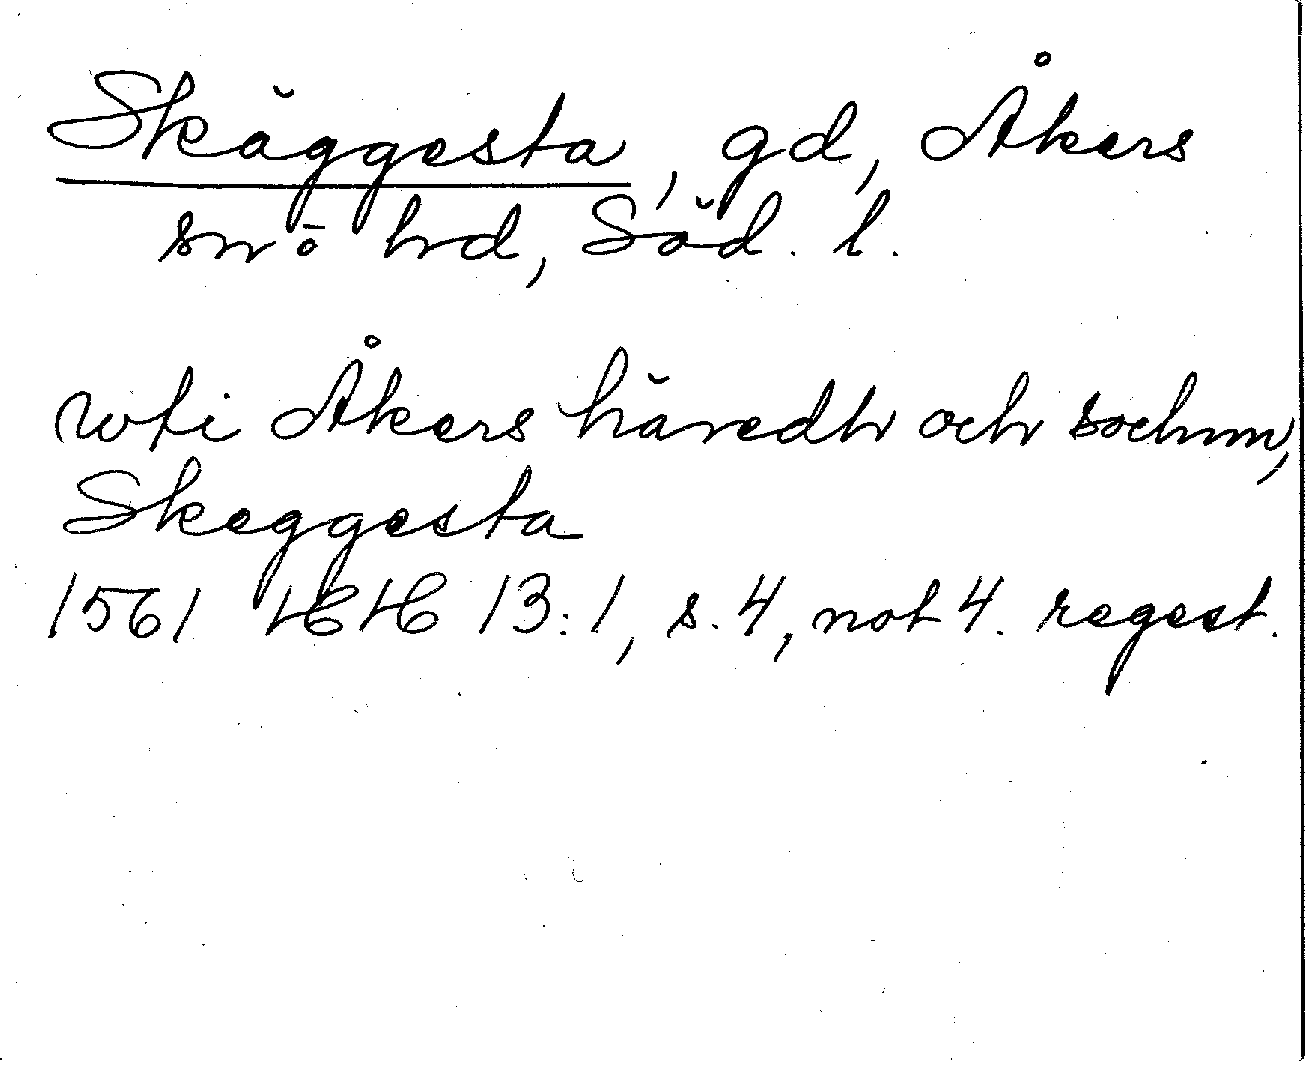 Skäggesta, gd, Åkers
sn o hd, Söd. l.
wti Åkers häredh och sochnn,
Skeggesta
1561 HH 13:1, s. 4, not 4. regest.